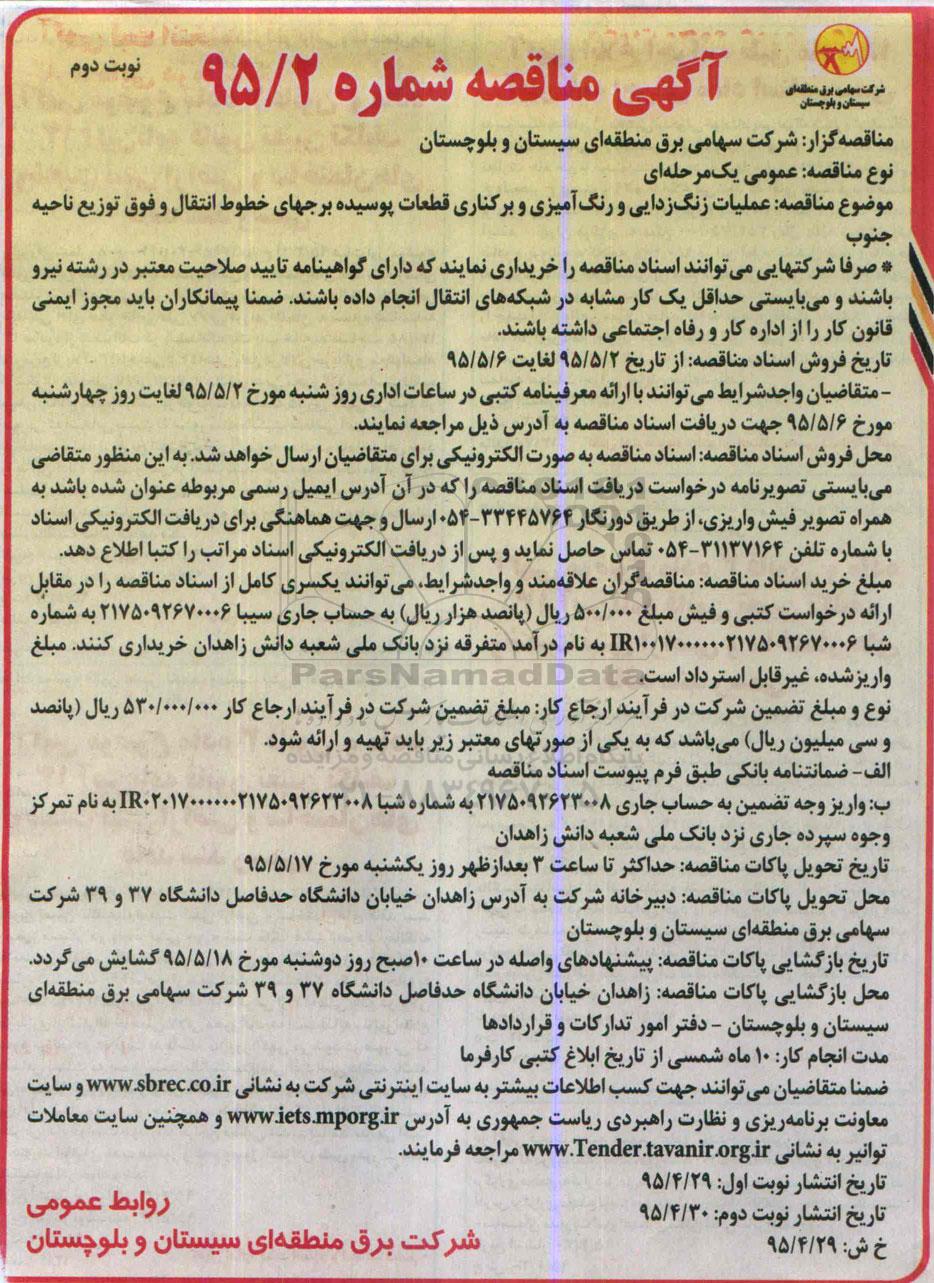 شرکت سهامی برق منطقه‌ای
سیستان و بلوچستان
آگهی مناقصه شماره ۹۵/۲
نوبت دوم
مناقصه‌گزار: شرکت سهامی برق منطقه‌ای سیستان و بلوچستان
نوع مناقصه: عمومی یک‌مرحله‌ای
موضوع مناقصه: عملیات زنگ‌زدایی و رنگ‌آمیزی و برکناری قطعات پوسیده برجهای خطوط انتقال و فوق توزیع ناحیه
جنوب
* صرفا شرکتهایی می‌توانند اسناد مناقصه را خریداری نمایند که دارای گواهینامه تایید صلاحیت معتبر در رشته نیرو
باشند و می‌بایستی حداقل یک کار مشابه در شبکه‌های انتقال انجام داده باشند. ضمنا پیمانکاران باید مجوز ایمنی
قانون کار را از اداره کار و رفاه اجتماعی داشته باشند.
تاریخ فروش اسناد مناقصه: از تاریخ ۹۵/۵/۲ لغایت ۹۵/۵/۶
- متقاضیان واجدشرایط می‌توانند با ارائه معرفینامه کتبی در ساعات اداری روز شنبه مورخ ۹۵/۵/۲ لغایت روز چهارشنبه
مورخ ۹۵/۵/۶ جهت دریافت اسناد مناقصه به آدرس ذیل مراجعه نمایند.
محل فروش اسناد مناقصه: اسناد مناقصه به صورت الکترونیکی برای متقاضیان ارسال خواهد شد. به این منظور متقاضی
می‌بایستی تصویرنامه درخواست دریافت اسناد مناقصه را که در آن آدرس ایمیل رسمی مربوطه عنوان شده باشد به
همراه تصویر فیش واریزی، از طریق دورنگار ۳۳۴۴۵۷۶۴-۰۵۴ ارسال و جهت هماهنگی برای دریافت الکترونیکی اسناد
با شماره تلفن ۳۱۱۳۷۱۶۴-۰۵۴ تماس حاصل نماید و پس از دریافت الکترونیکی اسناد مراتب را کتبا اطلاع دهد.
مبلغ خرید اسناد مناقصه: مناقصه‌گران علاقه‌مند و واجدشرایط، می‌توانند یکسری کامل از اسناد مناقصه را در مقابل
ارائه درخواست کتبی و فیش مبلغ ۵۰۰/۰۰۰ ریال (پانصد هزار ریال) به حساب جاری سیبا ۲۱۷۵۰۹۲۶۷۰۰۰۶ به شماره
شبا IR۱۰۰۱۷۰۰۰۰۰۰۲۱۷۵۰۹۲۶۷۰۰۰۶ به نام درآمد متفرقه نزد بانک ملی شعبه دانش زاهدان خریداری کنند. مبلغ
واریزشده، غیرقابل استرداد است.
نوع و مبلغ تضمین شرکت در فرآیند ارجاع کار: مبلغ تضمین شرکت در فرآیند ارجاع کار ۵۳۰/۰۰۰/۰۰۰ ریال (پانصد
و سی میلیون ریال) می‌باشد که به یکی از صورتهای معتبر زیر باید تهیه و ارائه شود.
الف- ضمانتنامه بانکی طبق فرم پیوست اسناد مناقصه
ب: واریز وجه تضمین به حساب جاری ۲۱۷۵۰۹۲۶۲۳۰۰۸ به شماره شبا IR۰۲۰۱۷۰۰۰۰۰۰۲۱۷۵۰۹۲۶۲۳۰۰۸ به نام تمرکز
وجوه سپرده جاری نزد بانک ملی شعبه دانش زاهدان
تاریخ تحویل پاکات مناقصه: حداکثر تا ساعت ۳ بعدازظهر روز یکشنبه مورخ ۹۵/۵/۱۷
محل تحویل پاکات مناقصه: دبیرخانه شرکت به آدرس زاهدان خیابان دانشگاه حدفاصل دانشگاه ۳۷ و ۳۹ شرکت
سهامی برق منطقه‌ای سیستان و بلوچستان
تاریخ بازگشایی پاکات مناقصه: پیشنهادهای واصله در ساعت ۱۰صبح روز دوشنبه مورخ ۹۵/۵/۱۸ گشایش می‌گردد.
محل بازگشایی پاکات مناقصه: زاهدان خیابان دانشگاه حدفاصل دانشگاه ۳۷ و ۳۹ شرکت سهامی برق منطقه‌ای
سیستان و بلوچستان - دفتر امور تدارکات و قراردادها
مدت انجام کار: ۱۰ ماه شمسی از تاریخ ابلاغ کتبی کارفرما
ضمنا متقاضیان می‌توانند جهت کسب اطلاعات بیشتر به سایت اینترنتی شرکت به نشانی www.sbrec.co.ir و سایت
معاونت برنامه‌ریزی و نظارت راهبردی ریاست جمهوری به آدرس www.iets.mporg.ir و همچنین سایت معاملات
توانیر به نشانی www.Tender.tavanir.org.ir مراجعه فرمایند.
تاریخ انتشار نوبت اول: ۹۵/۴/۲۹
تاریخ انتشار نوبت دوم: ۹۵/۴/۳۰
خ ش: ۹۵/۴/۲۹
روابط عمومی
شرکت برق منطقه‌ای سیستان و بلوچستان
ParsNamadData